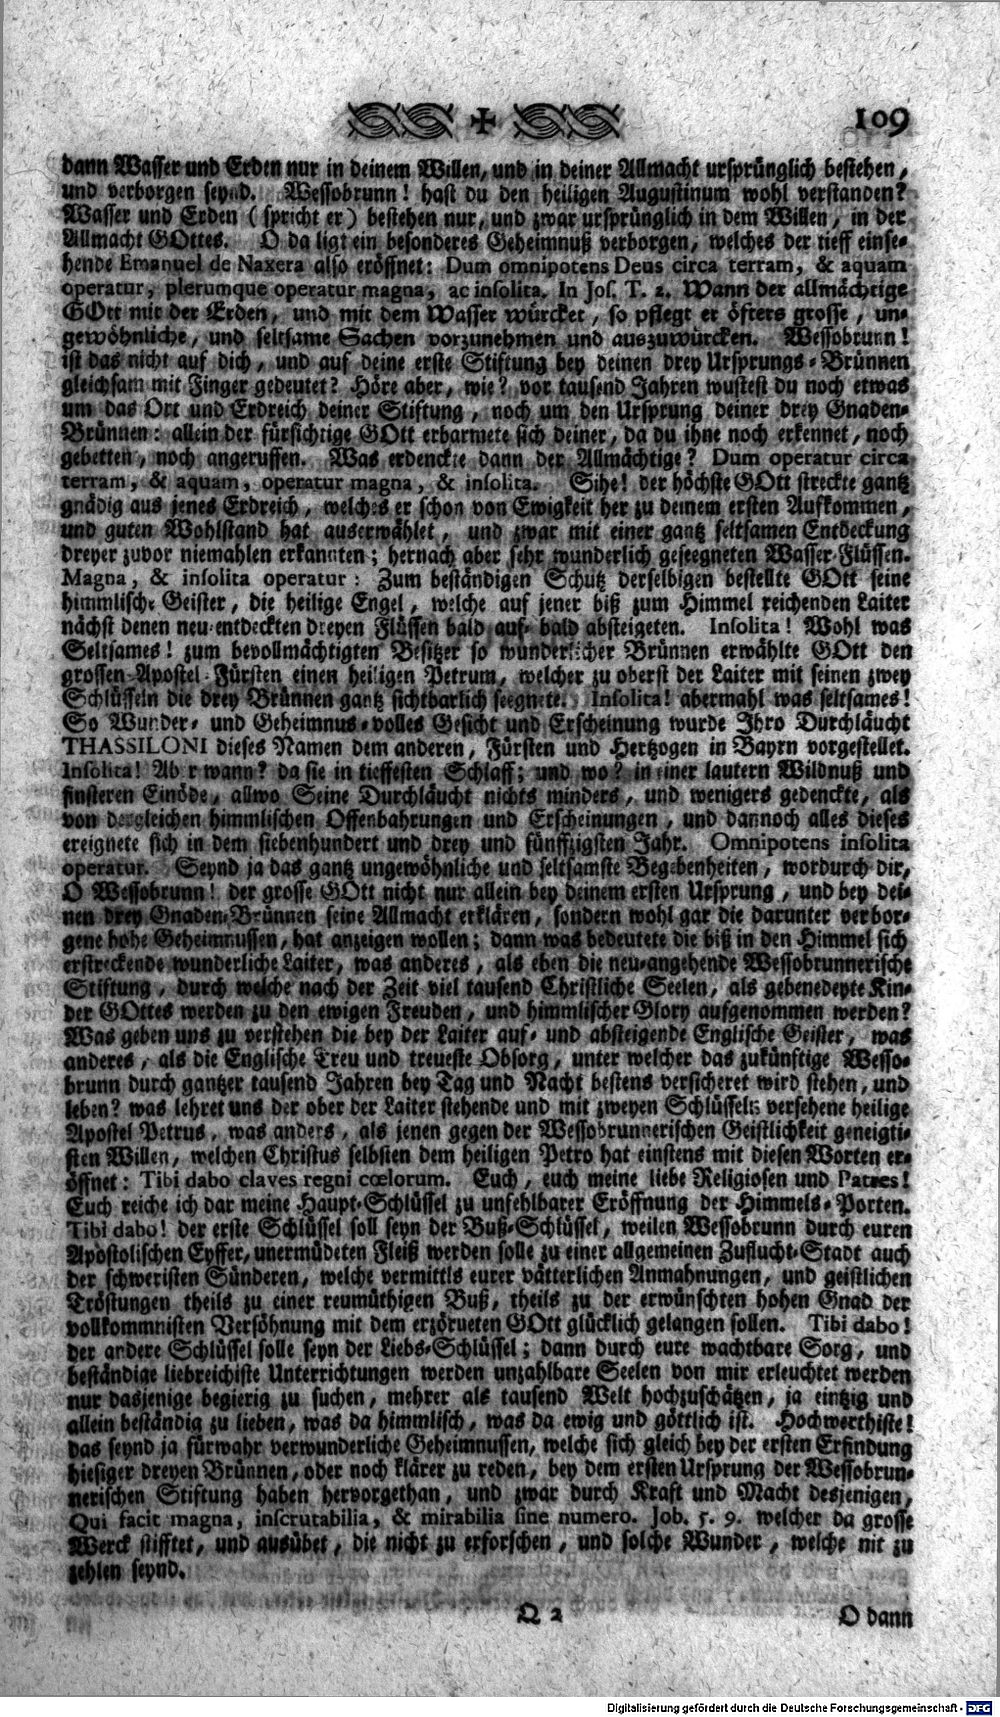 109
dann Wasser und Erden nur in deinem Willen, und in deiner Allmacht ursprünglich bestehen,
und verborgen seynd. Wessobrunn! hast du den heiligen Augustinum wohl verstanden?
Wasser und Erden (spricht er) bestehen nur, und zwar ursprünglich in dem Willen, in der
Allmacht GOttes. O da ligt ein besonderes Geheimnuß verborgen, welches der tieff einse-
hende Emanuel de Naxera also eröffnet: Dum omnipotens Deus circa terram, & aquam
operatur, plerumque operatur magna, ac insolita. In Jos. T. 2. Wann der allmächtige
GOtt mit der Erden, und mit dem Wasser würcket, so pflegt er öfters grosse, un-
gewöhnliche, und seltsame Sachen vorzunehmen und auszuwürcken. Wessobrunn!
ist das nicht auf dich, und auf deine erste Stiftung bey deinen drey Ursprungs-Brünnen
gleichsam mit Finger gedeutet? Höre aber, wie? vor tausend Jahren wustest du noch etwas
um das Ort und Erdreich deiner Stiftung, noch um den Ursprung deiner drey Gnaden-
Brünnen: allein der fürsichtige GOtt erbarmete sich deiner, da du ihne noch erkennet, noch
gebetten, noch angeruffen. Was erdenckte dann der Allmächtige? Dum operatur circa
terram, & aquam, operatur magna, & insolita. Sihe! der höchste GOtt streckte gantz
gnädig aus jenes Erdreich, welches er schon von Ewigkeit her zu deinem ersten Aufkommen,
und guten Wohlstand hat auserwählet, und zwar mit einer gantz seltsamen Entdeckung
dreyer zuvor niemahlen erkannten; hernach aber sehr wunderlich geseegneten Wasser-Flüssen.
Magna, & insolita operatur: Zum beständigen Schutz derselbigen bestellte GOtt seine
himmlische Geister, die heilige Engel, welche auf jener biß zum Himmel reichenden Laiter
nächst denen neu-entdeckten dreyen Flüssen bald auf- bald absteigeten. Insolita! Wohl was
Seltsames! zum bevollmächtigten Besitzer so wunderlicher Brünnen erwählte GOtt den
grossen Apostel-Fürsten einen heiligen Petrum, welcher zu oberst der Laiter mit seinen zwey
Schlüsseln die drey Brünnen gantz sichtbarlich seegnete. Insolita! abermahl was seltsames!
So Wunder- und Geheimnus-volles Gesicht und Erscheinung wurde Ihro Durchläucht
THASSILONI dieses Namen dem anderen, Fürsten und Hertzogen in Bayrn vorgestellet.
Insolita! Aber wann? da sie in tieffesten Schlaff; und wo? in einer lautern Wildnuß und
finsteren Einöde, allwo Seine Durchläucht nichts minders, und wenigers gedenckte, als
von dergleichen himmlischen Offenbahrungen und Erscheinungen, und dannoch alles dieses
ereignete sich in dem siebenhundert und drey und fünffzigsten Jahr. Omnipotens insolita
operatur. Seynd ja das gantz ungewöhnliche und seltsamste Begebenheiten, wordurch dir,
O Wessobrunn! der grosse GOtt nicht nur allein bey deinem ersten Ursprung, und bey dei-
nen drey Gnaden-Brünnen seine Allmacht erklären, sondern wohl gar die darunter verbor-
gene hohe Geheimnussen, hat anzeigen wollen; dann was bedeutete die biß in den Himmel sich
erstreckende wunderliche Laiter, was anderes, als eben die neu-angehende Wessobrunnerische
Stiftung, durch welche nach der Zeit viel tausend Christliche Seelen, als gebenedeyte Kin-
der GOttes werden zu den ewigen Freuden, und himmlischer Glory aufgenommen werden?
Was geben uns zu verstehen die bey der Laiter auf- und absteigende Englische Geister, was
anderes, als die Englische Treu und treueste Obsorg, unter welcher das zukünftige Wesso-
brunn durch gantzer tausend Jahren bey Tag und Nacht bestens versicheret wird stehen, und
leben? was lehret uns der ober der Laiter stehende und mit zweyen Schlüsseln versehene heilige
Apostel Petrus, was anders, als jenen gegen der Wessobrunnerischen Geistlichkeit geneigti-
sten Willen, welchen Christus selbsten dem heiligen Petro hat einstens mit diesen Worten er-
öffnet: Tibi dabo claves regni cœlorum. Euch, euch meine liebe Religiosen und Patres!
Euch reiche ich dar meine Haupt-Schlüssel zu unfehlbarer Eröffnung der Himmels-Porten.
Tibi dabo! der erste Schlüssel soll seyn der Buß-Schlüssel, weilen Wessobrunn durch euren
Apostolischen Eyffer, unermüdeten Fleiß werden solle zu einer allgemeinen Zuflucht-Stadt auch
der schweristen Sünderen, welche vermittls eurer vätterlichen Anmahnungen, und geistlichen
Tröstungen theils zu einer reumüthigen Buß, theils zu der erwünschten hohen Gnad der
vollkommnisten Versöhnung mit dem erzörneten GOtt glücklich gelangen sollen. Tibi dabo!
der andere Schlüssel solle seyn der Liebs-Schlüssel; dann durch eure wachtbare Sorg, und
beständige liebreichiste Unterrichtungen werden unzahlbare Seelen von mir erleuchtet werden
nur dasjenige begierig zu suchen, mehrer als tausend Welt hochzuschätzen, ja eintzig und
allein beständig zu lieben, was da himmlisch, was da ewig und göttlich ist. Hochwerthiste!
das seynd ja fürwahr verwunderliche Geheimnussen, welche sich gleich bey der ersten Erfindung
hiesiger dreyen Brünnen, oder noch klärer zu reden, bey dem ersten Ursprung der Wessobrun-
nerischen Stiftung haben hervorgethan, und zwar durch Kraft und Macht desjenigen,
Qui facit magna, inscrutabilia, & mirabilia sine numero. Job. 5. 9. welcher da grosse
Werck stifftet, und ausübet, die nicht zu erforschen, und solche Wunder, welche nit zu
zehlen seynd.
Q 2 O dann
Digitalisierung gefördert durch die Deutsche Forschungsgemeinschaft - DFG